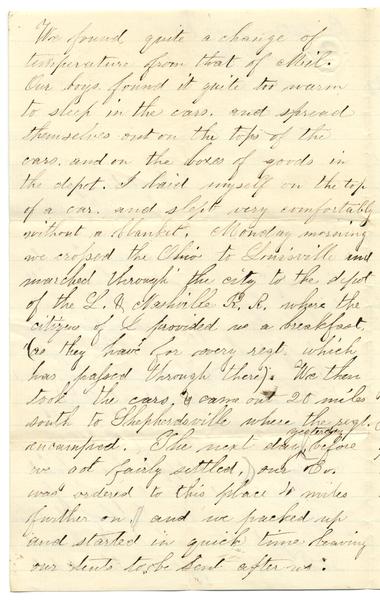 We found quite a change of
temperature from that of Mil.
Our boys found it quite too warm
to sleep in the cars. and spread
themselves out on the tops of the
cars. and on the boxes of goods in
the depot. I laid myself on the top
of a car. and slept very comfortably
without a blanket. Monday morning
we crossed the Ohio to Louisville and
marched through the city to the depot
of the L. & Nashville R. R. where the
citizens of L provided us a breakfast,
(as they have for every regt. which
has passed through there). We then
took the cars, & came out 20 miles
south to Shepherdsville where the regt.
encamped. The next day before
yesterday
we got fairly settled, our Co.
was ordered to this place miles
further on, and we packed up
and started in quick time leaving
our tents to be sent after us.